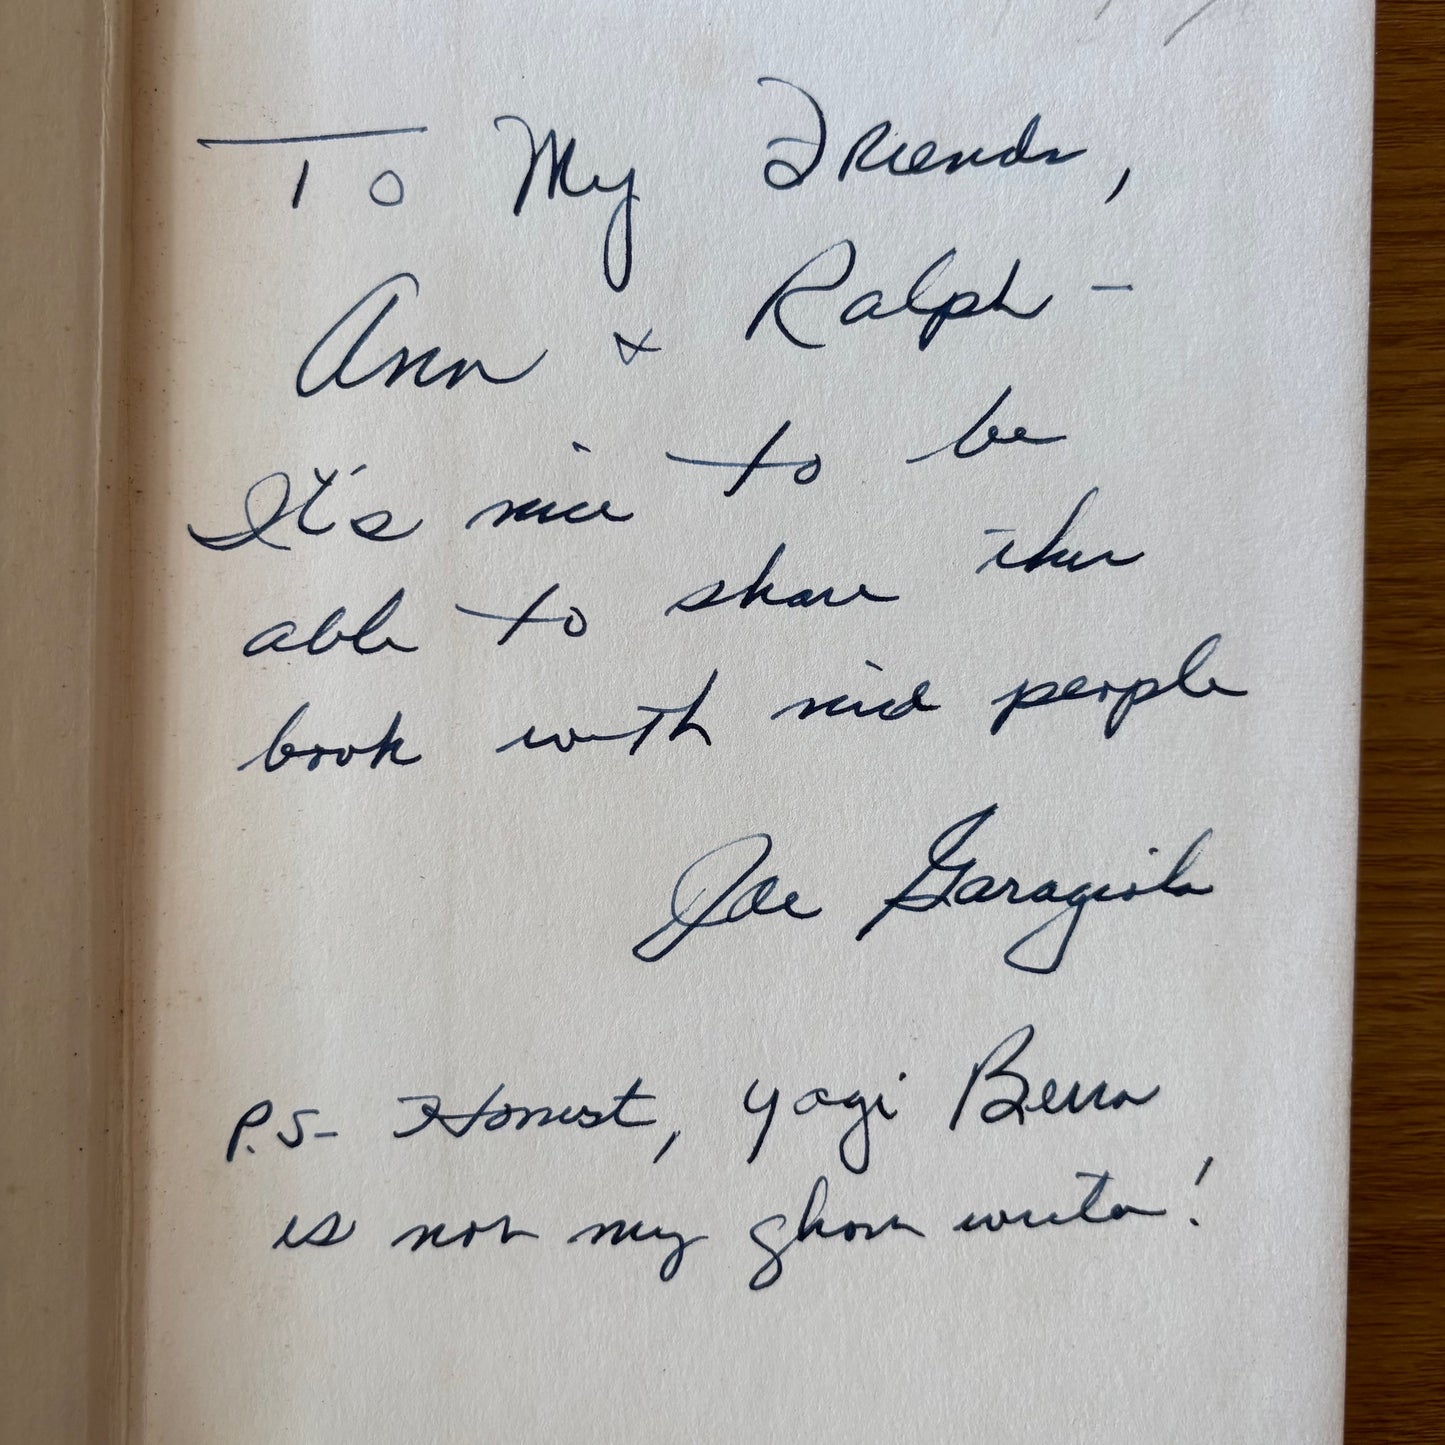 To My Friends,
Ann & Ralph -
It's nice to be
able to share this
book with nice people
Joe Garagiola
P.S- Honest, Yogi Berra
is not my ghost writer!